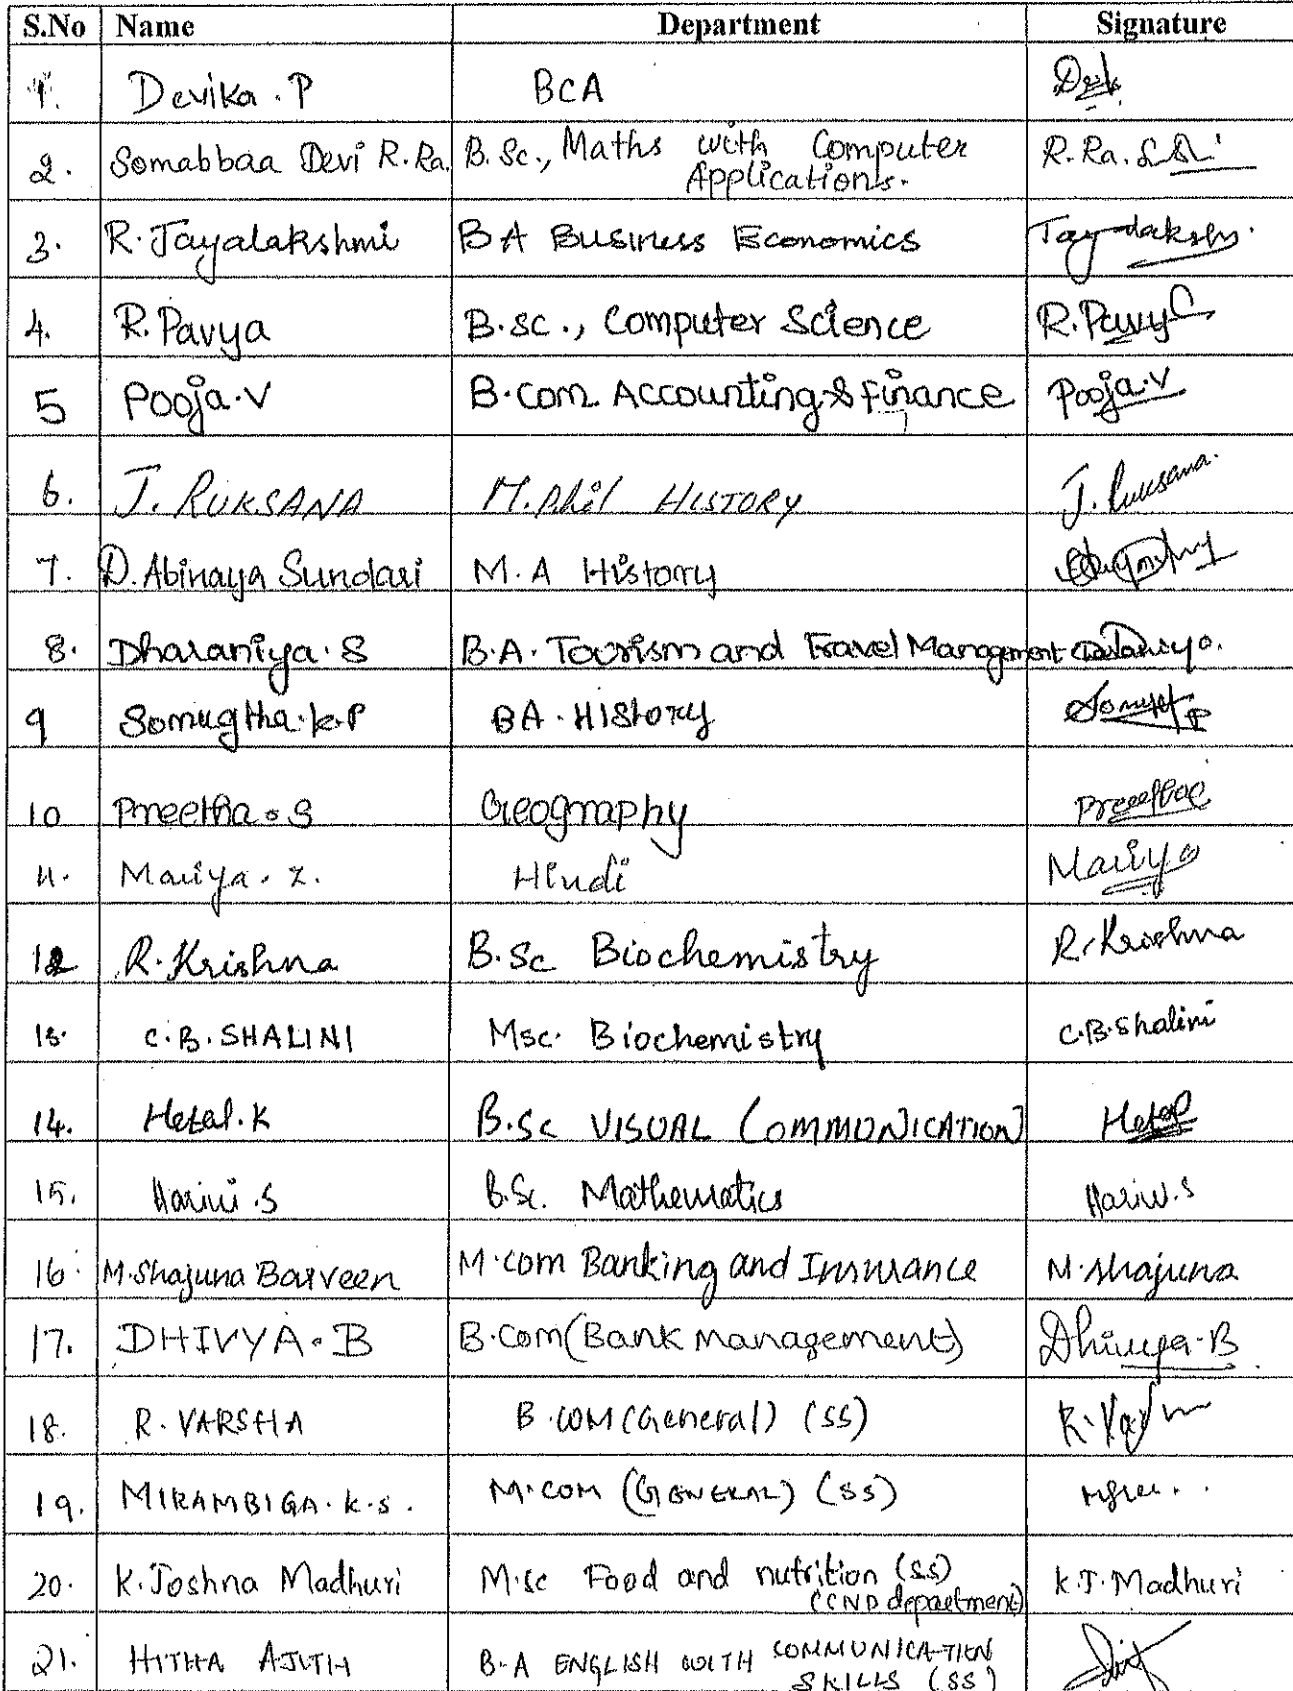 S.No Name Department Signature
1. Devika . P BCA
2. Somabbaa Devi R.Ra. B.Sc., Maths with Computer R.Ra.
Applications.
3. R. Jayalakshmi BA Business Economics
4. R. Pavya B.sc., Computer Science R. Pavya
5 Pooja.V B.com. Accounting & finance Pooja.V
6. J. RUKSANA M.phil HISTORY J. Ruksana.
7. D. Abinaya Sundari M.A History
8. Dharaniya. S B.A. Tourism and Travel Management
9 Somugtha.k.P BA. History
10 Preetha. S Geography Preetha
11. Mariya. Z. Hindi Mariya
12 R. Krishna B.Sc Biochemistry R. Krishna
13. C.B. SHALINI Msc. Biochemistry C.B. Shalini
14. Hetal. K B.Sc VISUAL COMMUNICATION Hetal
15. Harini .S B.Sc. Mathematics Harini.S
16. M.Shajuna Barveen M.com Banking and Insurance M.Shajuna
17. DHIVYA. B B.Com (Bank management) Dhivya.B
18. R. VARSHA B.COM (General) (SS)
19. MIRAMBIGA. K.S. M.COM (GENERAL) (SS)
20. K. Joshna Madhuri M.sc Food and nutrition (SS) K.J. Madhuri
(CND department)
21. HITHA AJITH B.A ENGLISH WITH COMMUNICATION
SKILLS (SS)